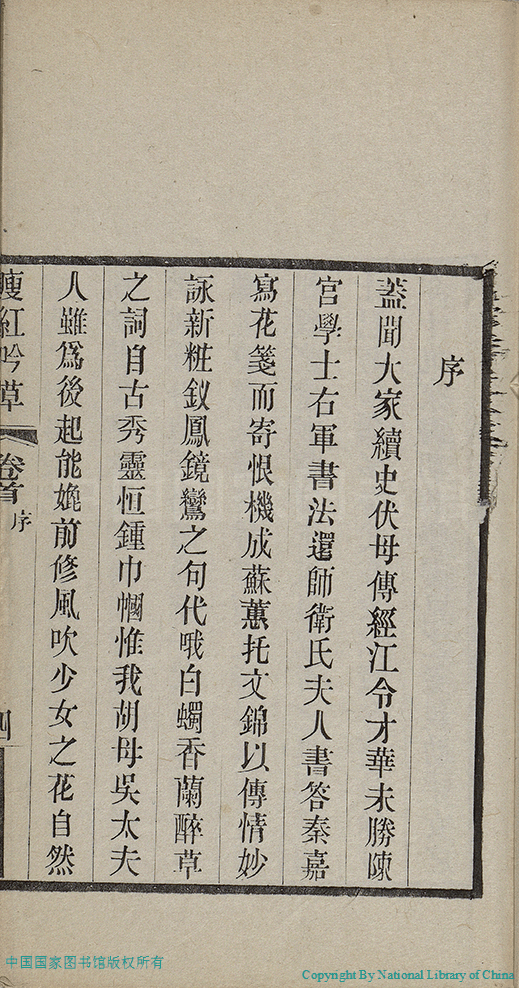 序
蓋聞大家續史伏母傳經江令才華未勝陳
宮學士右軍書法還師衛氏夫人書答秦嘉
寫花箋而寄恨機成蘇蕙托文錦以傳情妙
詠新粧釵鳳鏡鸞之句代哦白蠋香蘭醉草
之詞自古秀靈恒鍾巾幗惟我胡母吳太夫
人雖爲後起能媲前修風吹少女之花自然
瘦紅吟草 卷首 序
中国国家图书馆版权所有
Copyright By National Library of China